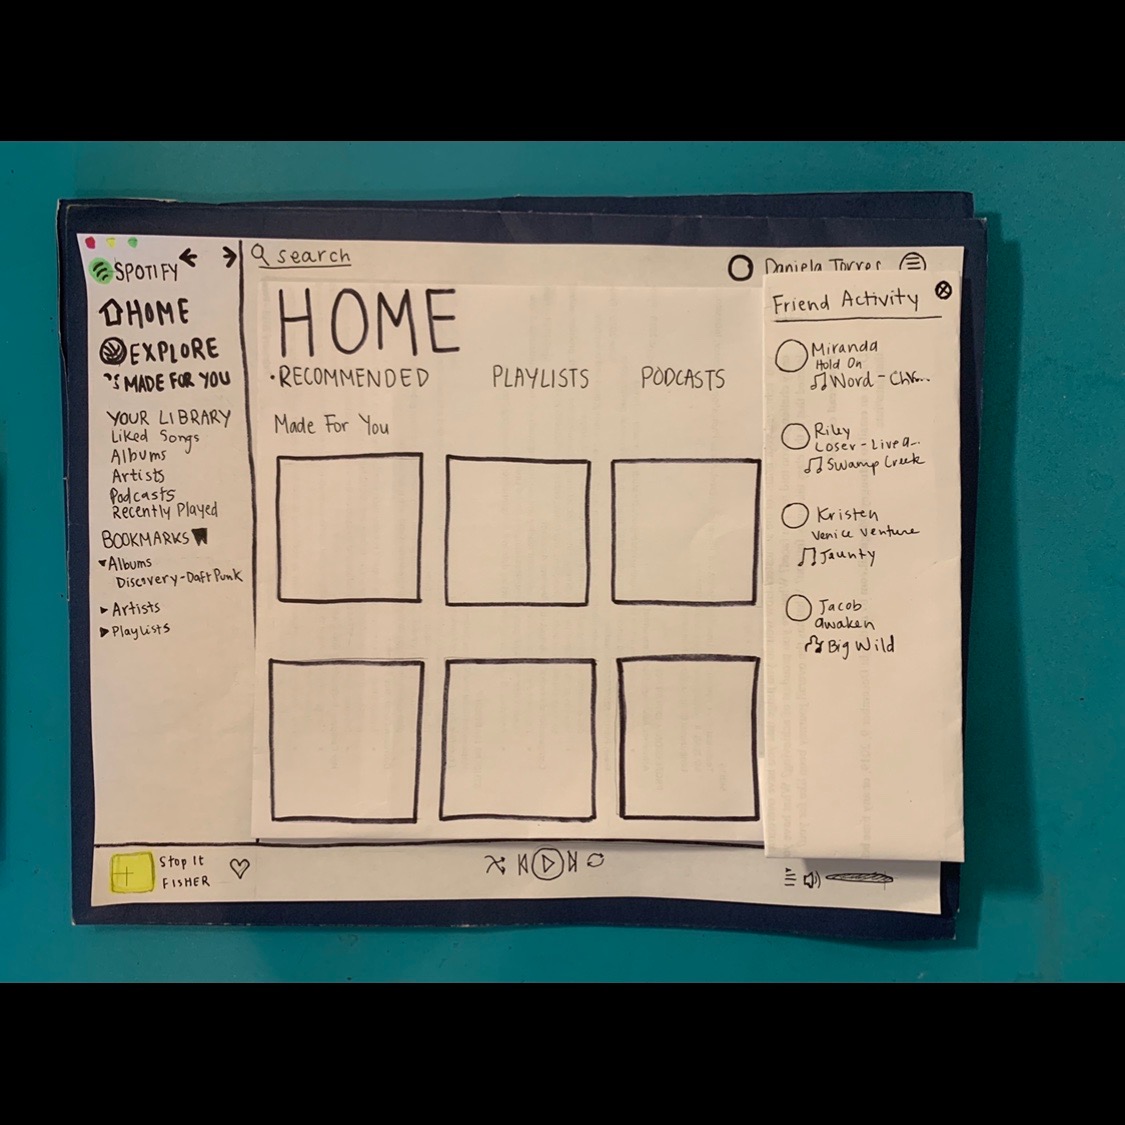 SPOTIFY
HOME
EXPLORE
MADE FOR YOU
YOUR LIBRARY
Liked Songs
Albums
Artists
Podcasts
Recently Played
BOOKMARKS
Albums
Discovery-Daft Punk
Artists
Playlists
search
Daniela Torres
HOME
RECOMMENDED PLAYLISTS PODCASTS
Made For You
Friend Activity
Miranda
Hold On
Word - Chr...
Riley
Loser - Live a...
Swamp Creek
Kristen
Venice Venture
Jaunty
Jacob
awaken
Big Wild
Stop It
FISHER